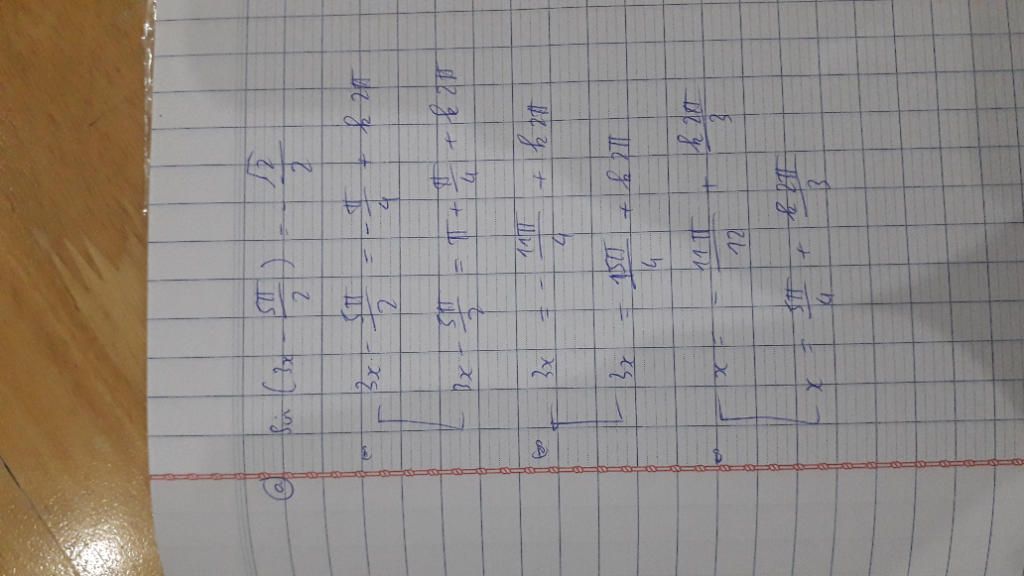 a) sin (3x - 5π/2) = - √2/2
⇔ [ 3x - 5π/2 = - π/4 + k2π
3x - 5π/2 = π + π/4 + k2π
⇔ [ 3x = - 11π/4 + k2π
3x = 15π/4 + k2π
⇔ [ x = - 11π/12 + k2π/3
x = 5π/4 + k2π/3